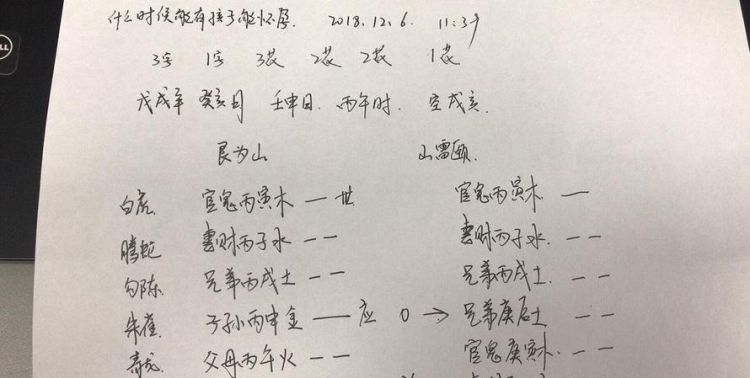 什么时候能有孩子能怀孕. 2018.12.6. 11:39
3字 1字 3花 2花 2花 1花
戊戌年 癸亥月 壬申日. 丙午时. 空戌亥.
艮为山 山雷颐.
白虎 官鬼丙寅木 — 世 官鬼丙寅木 —
腾蛇 妻财丙子水 — — 妻财丙子水. — —
勾陈 兄弟丙戌土 — — 兄弟丙戌土. — —
朱雀 子孙丙申金 — 应 0 → 兄弟庚辰土 — —
青龙 父母丙午火 — — 官鬼庚寅木. — —